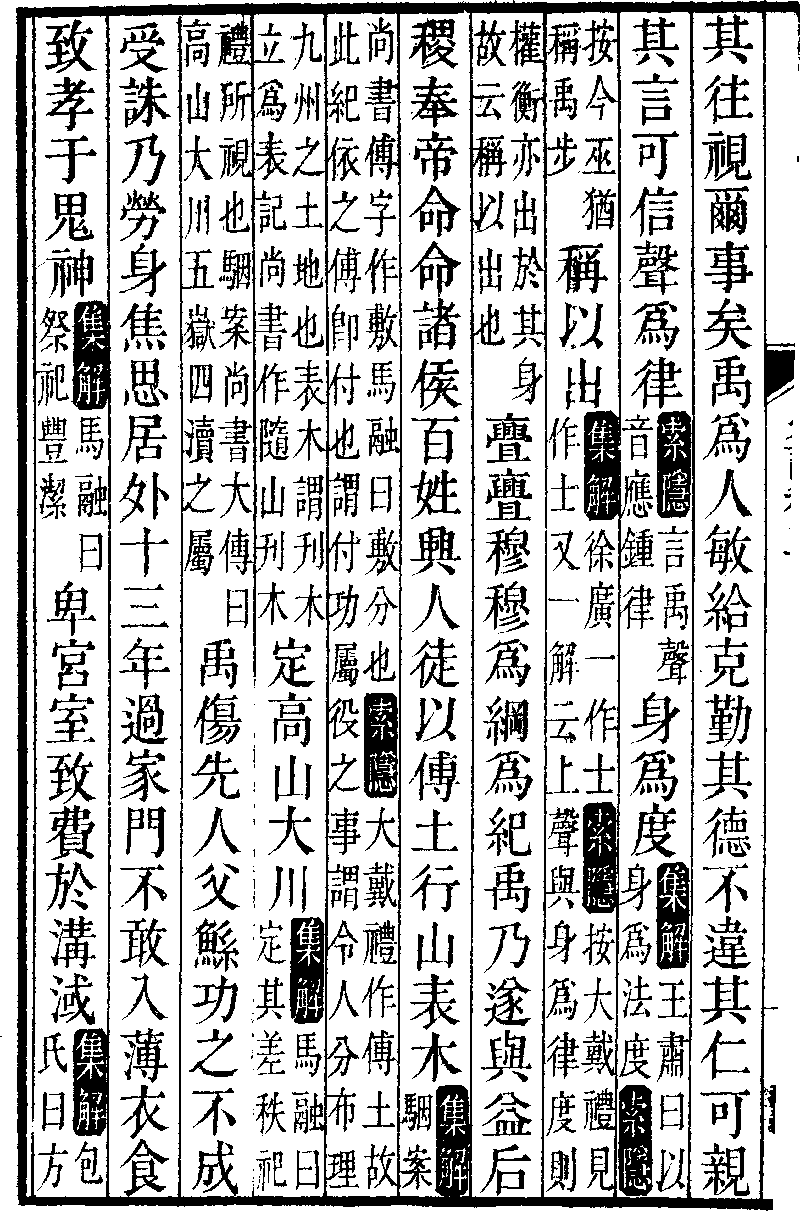 其往視爾事矣禹爲人敏給克勤其德不違其仁可親
其言可信聲爲律索隱言禹聲音應鍾律身爲度集解王肅曰以身爲法度索隱
按今巫猶稱禹步稱以出集解徐廣一作士索隱按大戴禮見作士又一解云上聲與身爲律度則
權衡亦出於其身故云稱以出也亹亹穆穆爲綱爲紀禹乃遂與益后
稷奉帝命命諸侯百姓興人徒以傅土行山表木集解駰案
尚書傅字作敷馬融曰敷分也索隱大戴禮作傅土故
此紀依之傅卽付也謂付功屬役之事謂令人分布理
九州之土地也表木謂刊木立爲表記尚書作隨山刊木定高山大川集解馬融曰定其差秩祀
禮所視也駰案尚書大傳曰高山大川五嶽四瀆之屬禹傷先人父鯀功之不成
受誅乃勞身焦思居外十三年過家門不敢入薄衣食
致孝于鬼神集解馬融曰祭祀豐潔卑宮室致費於溝淢集解包氏曰方